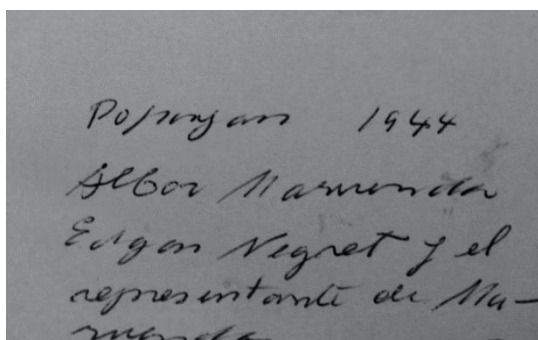 Popayan 1944
Albor Maruenda
Edgar Negret y el
representante de Ma-
ruenda